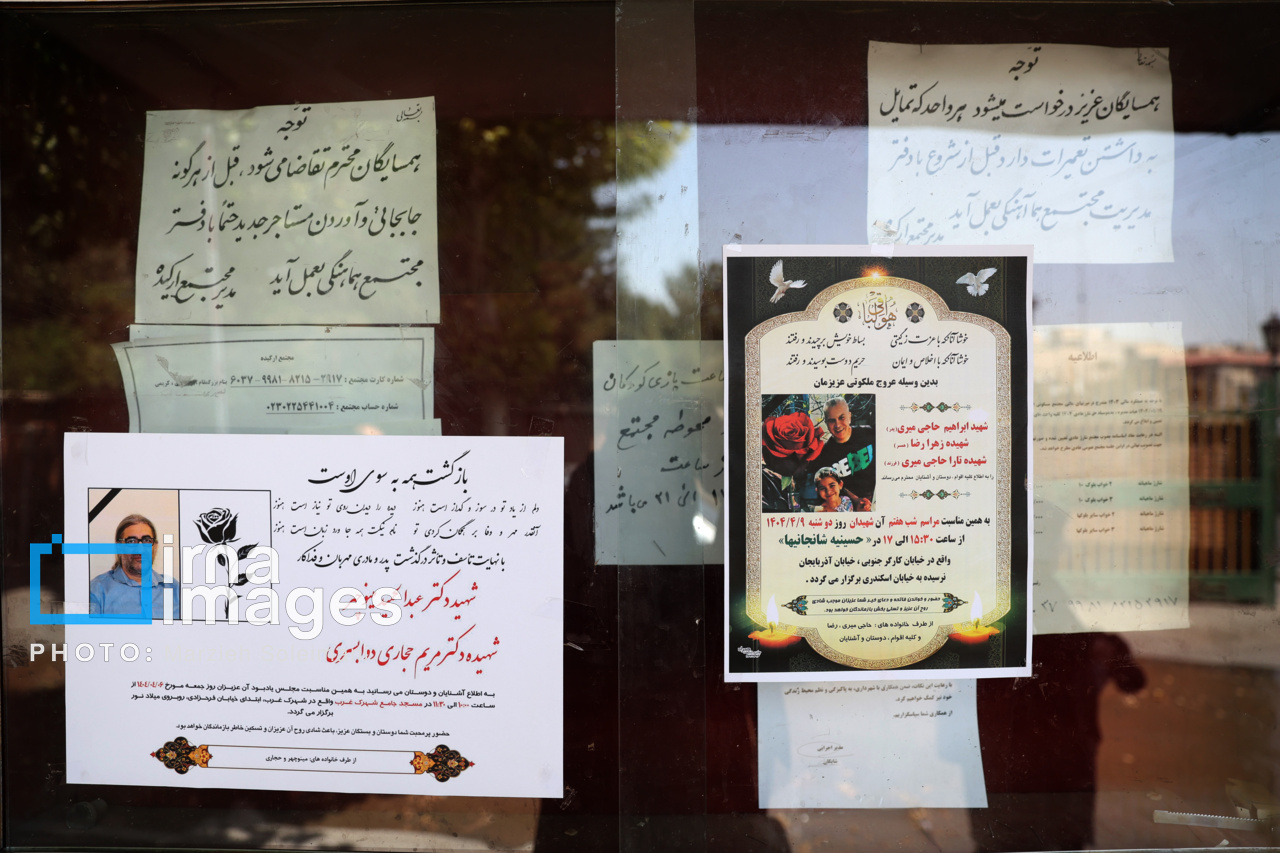 بسمه تعالی
توجه
همسایگان محترم تقاضا می شود ، قبل از هرگونه
جابجائی و آوردن مستاجر جدید حتما با دفتر
مجتمع هماهنگی بعمل آید
مدیر مجتمع ارکیده
مجتمع ارکیده
شماره کارت مجتمع : ۳۹۱۷-۸۲۱۵-۹۹۸۱-۶۰۳۷
شماره حساب مجتمع : ۰۲۳۰۲۲۵۴۴۱۰۰۴
بازگشت همه به سوی اوست
دلم از یاد تو در سوز و گداز است هنوز
دیده را دیدن روی تو نیاز است هنوز
آنقدر مهر و وفا بر همگان کردی تو
نام نیکت همه جا ورد زبان است هنوز
با نهایت تاسف و تاثر درگذشت پدر و مادری مهربان و فداکار
شهید دکتر
شهیده دکتر مریم حجاری
به اطلاع آشنایان و دوستان می رسانید به همین مناسبت مجلس یادبود آن عزیزان روز جمعه مورخ ۱۴۰۴/۰۴/۰۶ از
ساعت ۱۰:۰۰ الی ۱۱:۳۰ در مسجد جامع شهرک غرب واقع در شهرک غرب، ابتدای خیابان فرحزادی، روبروی میلاد نور
برگزار می گردد.
حضور پرمحبت شما دوستان و بستگان عزیز، باعث شادی روح آن عزیزان و تسکین خاطر بازماندگان خواهد بود.
از طرف خانواده های: مینوچهر و حجاری
irna
images
PHOTO:
ساعت بازی کودکان
محوطه مجتمع
ساعت
الی ۲۱ می باشد
توجه
همسایگان عزیز درخواست میشود هر واحد که تمایل
به داشتن تعمیرات دارد قبل از شروع با دفتر
مدیریت مجتمع هماهنگی بعمل آید
مدیر مجتمع
هوالباقی
خوشا آنانکه با عزت ز گیتی
بساط خویش برچیدند و رفتند
خوشا آنانکه با اخلاص و ایمان
حریم دوست بوسیدند و رفتند
بدین وسیله عروج ملکوتی عزیزمان
شهید ابراهیم حاجی میری (پدر)
شهیده زهرا رضا (همسر)
شهیده تارا حاجی میری (فرزند)
را به اطلاع کلیه اقوام ، دوستان و آشنایان محترم میرساند
به همین مناسبت مراسم شب هفتم آن شهیدان روز دو شنبه ۱۴۰۴/۴/۹
از ساعت ۱۵:۳۰ الی ۱۷ در « حسینیه شانجانیها »
واقع در خیابان کارگر جنوبی ، خیابان آذربایجان
نرسیده به خیابان اسکندری برگزار می گردد .
حضور و خواندن فاتحه و دعای خیر شما عزیزان موجب شادی
روح آن عزیز و تسلی بخش بازماندگان خواهد بود
از طرف خانواده های : حاجی میری ، رضا
و کلیه اقوام ، دوستان و آشنایان
اطلاعیه
با رعایت این نکات، ضمن همکاری با شهرداری، به پاکیزگی و نظم محیط زندگی
خود نیز کمک خواهیم کرد.
از همکاری شما سپاسگزاریم.
مدیر اجرایی